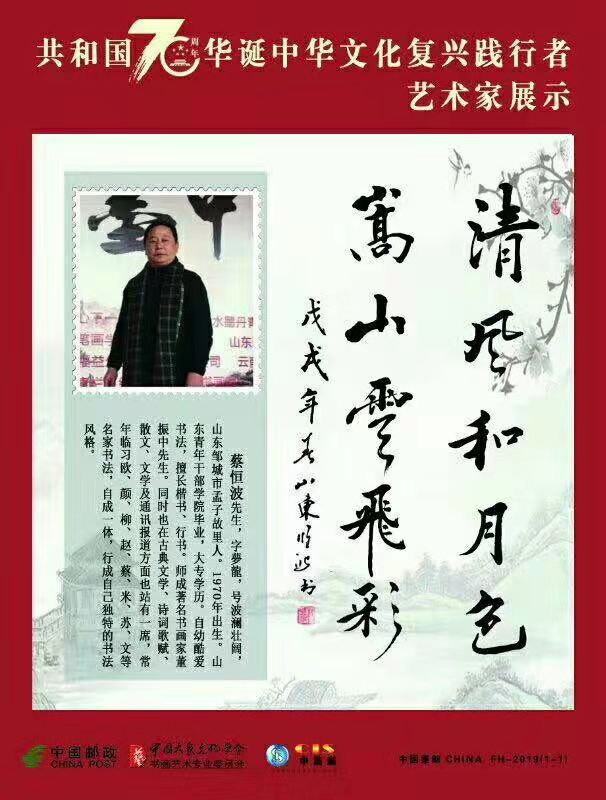 共和国70周年华诞中华文化复兴践行者
艺术家展示
清风和月色
嵩山雲飛彩
戊戌年春山東
蔡恒波先生，字夢龍，号波澜壮阔，
山东邹城市孟子故里人。1970年出生。山
东青年干部学院毕业，大专学历。自幼酷爱
书法，擅长楷书、行书。师成著名书画家董
振中先生。同时也在古典文学、诗词歌赋、
散文、文学及通讯报道方面也站有一席，常
年临习欧、颜、柳、赵、蔡、米、苏、文等
名家书法，自成一体，行成自己独特的书法
风格。
中国邮政
CHINA POST
中国大众文化学会
书画艺术专业委员会
CIS
CHINA FH-2019(1-1)